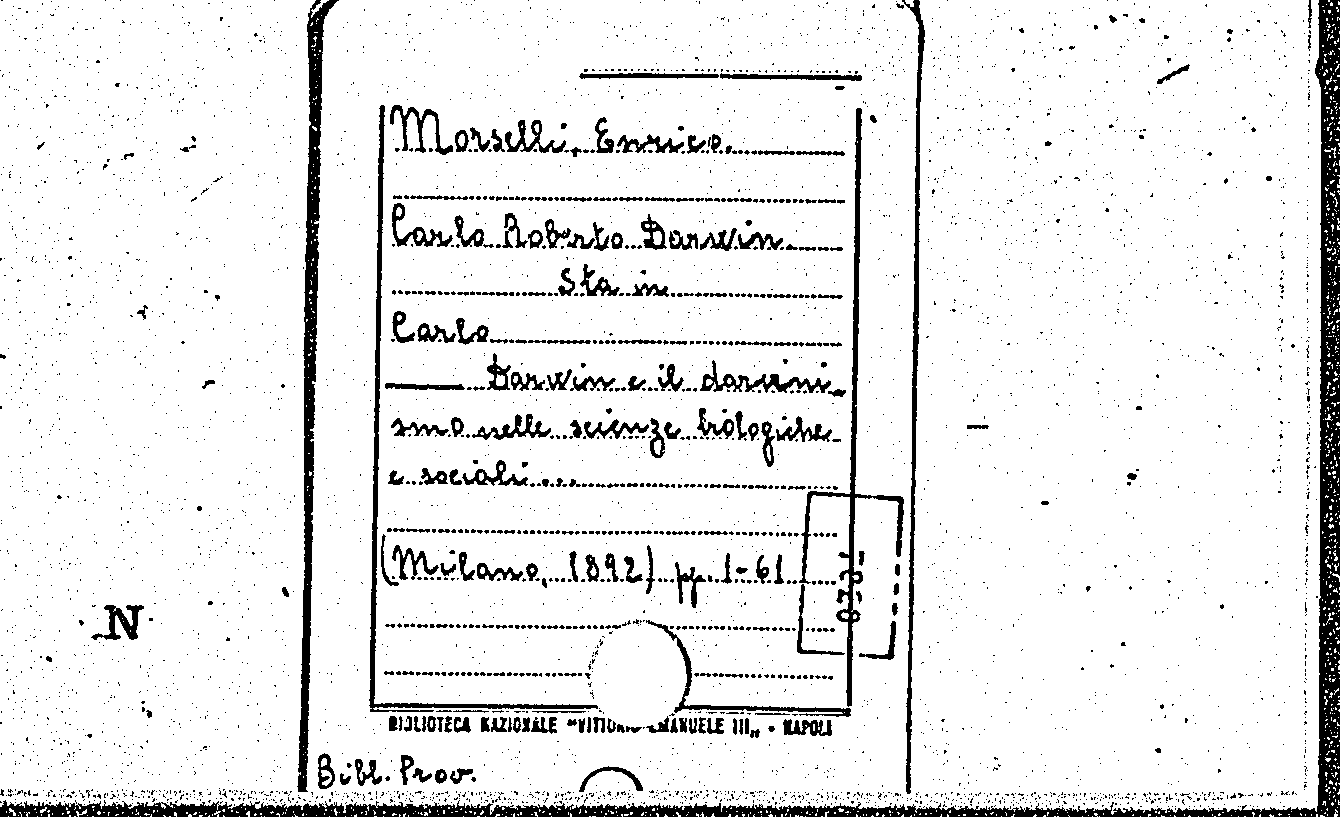 Morselli, Enrico.
Carlo Roberto Darwin.
Sta in
Carlo
Darwin e il darwini_
smo nelle scienze biologiche
e sociali ...
(Milano, 1892) pp. 1-61
N
BIBLIOTECA NAZIONALE "VITTORIO EMANUELE III„ - NAPOLI
Bibl. Prov.